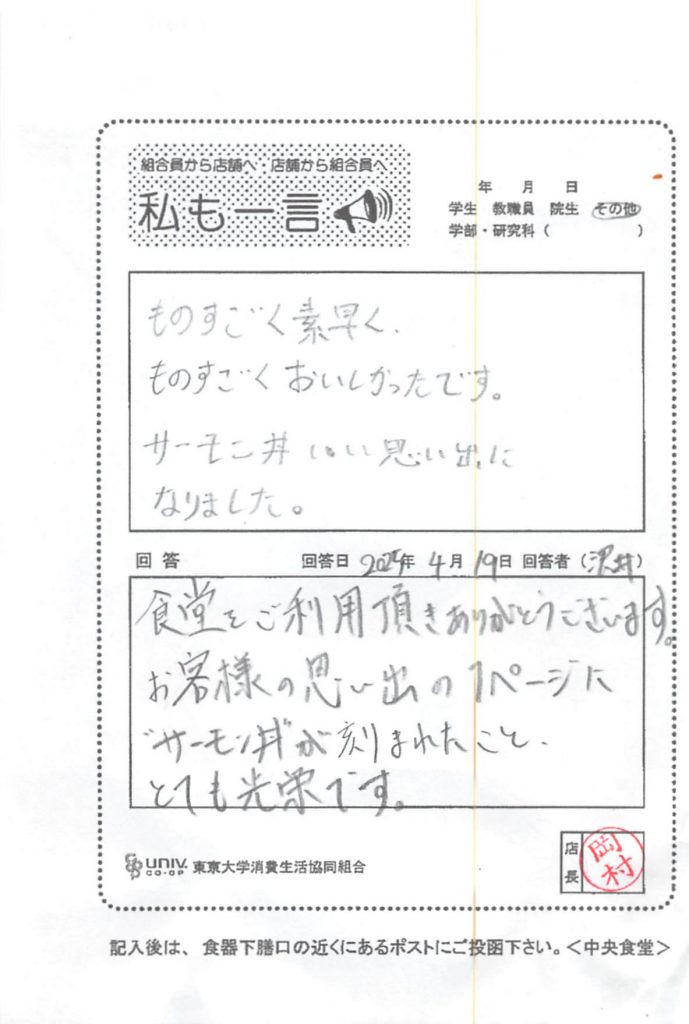 組合員から店舗へ 店舗から組合員へ
私も一言
年 月 日
学生 教職員 院生 その他
学部・研究科( )
ものすごく素早く、
ものすごくおいしかったです。
サーモン丼 いい思い出に
なりました。
回答 回答日 2025年 4月 19日 回答者(沢井)
食堂をご利用頂きありがとうございます。
お客様の思い出の1ページに
"サーモン丼"が刻まれたこと、
とても光栄です。
UNIV. CO-OP 東京大学消費生活協同組合
店長 岡村
記入後は、食器下膳口の近くにあるポストにご投函下さい。<中央食堂>